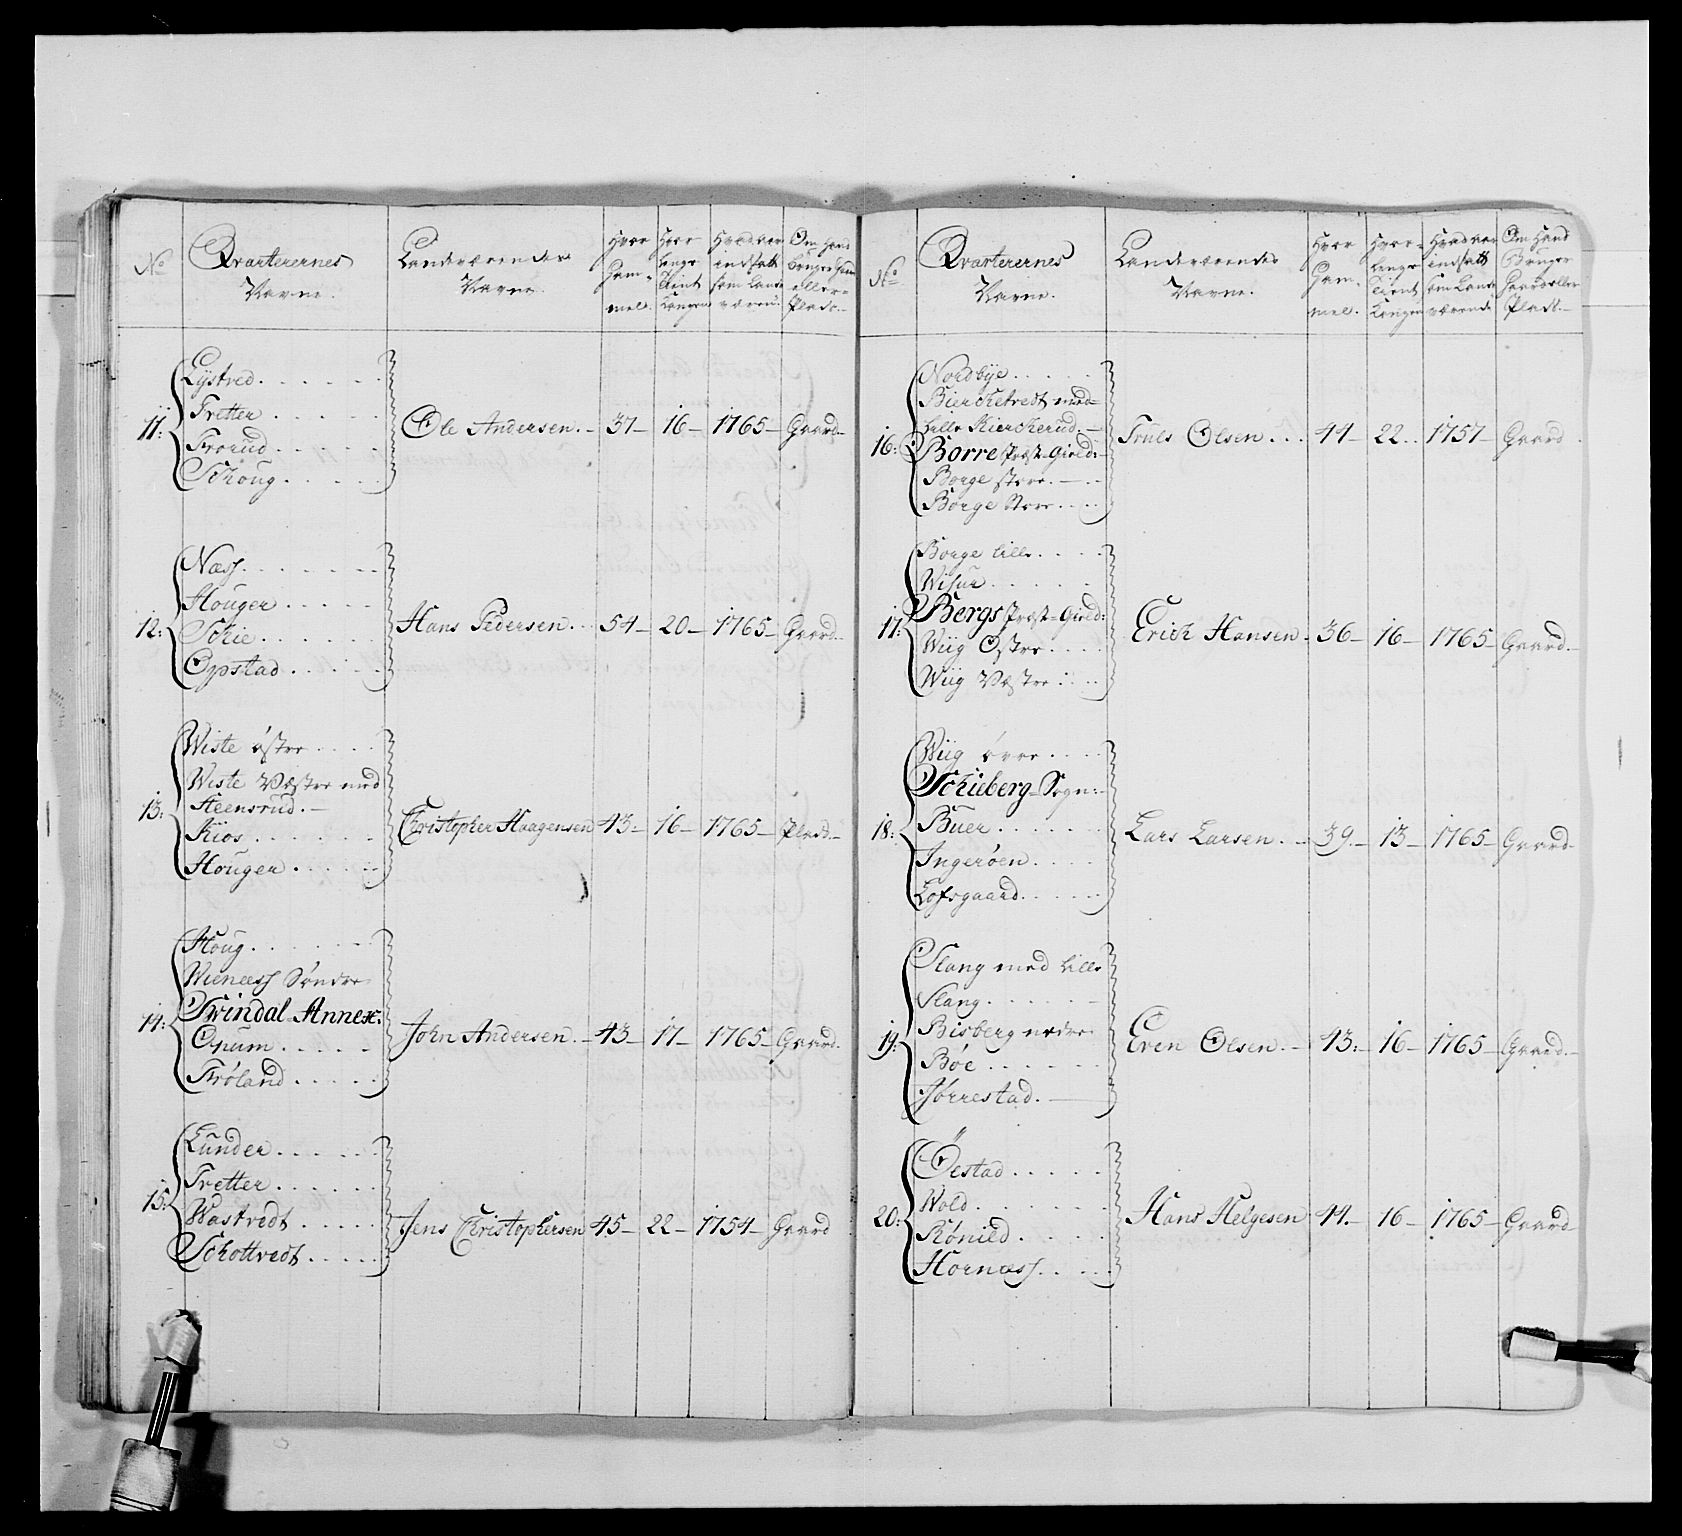 No
Qvarterernes
Navne.
Landværendes
Navne.
Hvor
Gam-
mel.
Hvor
lenge
Tient
Kongen
Hvad aar
indsatt
som Land
værend
Om Hand
bruger Gaard
eller
Plads.
11:
Lÿstred
Tretter
Frorud
Schoug
Ole Andersen. 37 16 1765 Gaard
12:
Næss
Houger
Schie
Opstad
Hans Pedersen. 54 20 1765 Gaard
13:
Wiste østre
Wiste Væstre med
Steensrud.
Kios
Houger
Christopher Haagensen 43 16 1765 Plads
14:
Houg
Wienæss Søndre
Svindal Annex:
Opum
Frøland
John Andersen. 43 17 1765 Gaard.
15:
Lunder
Tretter
Wastvedt
Schottvedt
Jens Christophersen 45 22 1754 Gaard
No
Qvarterernes
Navne.
Landværendes
Navne.
Hvor
Gam-
mel.
Hvor
lenge
Tient
Kongen
Hvad aar
indsatt
som Land
værende
Om Hand
Bruger
Gaard eller
Plads.
16:
Nordbÿe
Bierchetvedt med
lille Kierkerud.
Borre Præste-Gield:
Borge store
Børge Store
Truls Olsen 44 22 1757 Gaard
17:
Borge lille
Wisur
Bergs Præste-Gield:
Wiig Østre
Wiig Væstre
Erich Hansen 36 16 1765 Gaard.
18:
Wiig øvre
Schieberg Sogn:
Buer
Ingerøen
Lofsgaard
Lars Larsen. 39. 13 1765 Gaard
19:
Slang med lille
Slang
Bisberg nedre
Bøe
Jørrestad.
Even Olsen. 43: 16 1765 Gaard.
20:
Öestad
Wold
Rønild
Hornæss
Hans Helgesen 44. 16 1765 Gaard